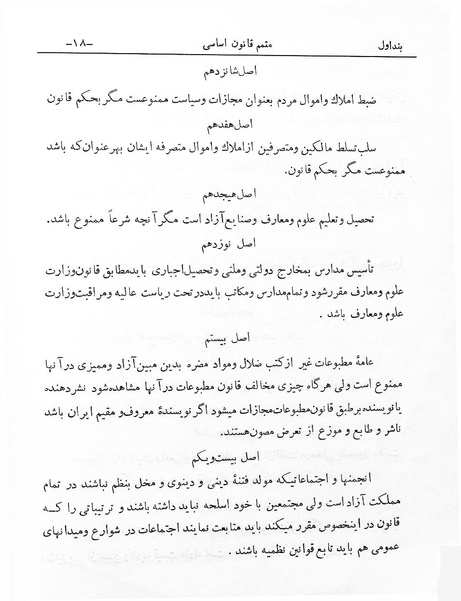 بند اول متمم قانون اساسی -۱۸-
اصل شانزدهم
ضبط املاک و اموال مردم بعنوان مجازات وسیاست ممنوعست مگر بحکم قانون
اصل هفدهم
سلب تسلط مالکین و متصرفین از املاک و اموال متصرفه ایشان بهر عنوان که باشد
ممنوعست مگر بحکم قانون.
اصل هیجدهم
تحصیل و تعلیم علوم و معارف و صنایع آزاد است مگر آنچه شرعاً ممنوع باشد.
اصل نوزدهم
تأسیس مدارس بمخارج دولتی و ملتی و تحصیل اجباری باید مطابق قانون وزارت
علوم و معارف مقرر شود و تمام مدارس و مکاتب باید در تحت ریاست عالیه و مراقبت وزارت
علوم و معارف باشد .
اصل بیستم
عامهٔ مطبوعات غیر از کتب ضلال و مواد مضره بدین مبین آزاد و ممیزی در آنها
ممنوع است ولی هرگاه چیزی مخالف قانون مطبوعات در آنها مشاهده شود نشر دهنده
یا نویسنده بر طبق قانون مطبوعات مجازات میشود اگر نویسندهٔ معروف و مقیم ایران باشد
ناشر و طابع و موزع از تعرض مصون هستند.
اصل بیست و یکم
انجمنها و اجتماعاتیکه مولد فتنهٔ دینی و دنیوی و مخل بنظم نباشند در تمام
مملکت آزاد است ولی مجتمعین با خود اسلحه نباید داشته باشند و ترتیباتی را که
قانون در اینخصوص مقرر میکند باید متابعت نمایند اجتماعات در شوارع و میدانهای
عمومی هم باید تابع قوانین نظمیه باشند .